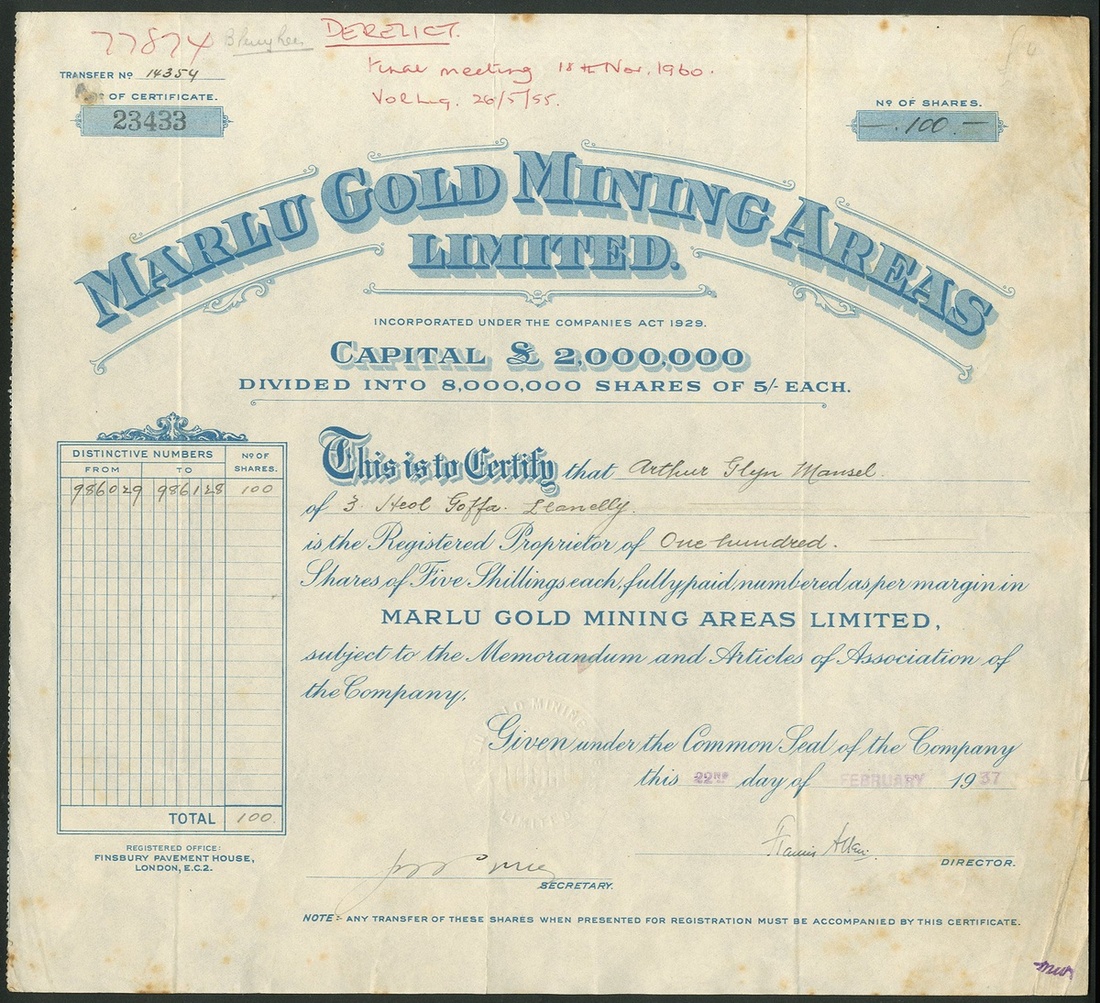 77874
DERELICT.
Final meeting 18th Nov. 1960.
Vol Liq. 26/5/55.
TRANSFER No 14354
OF CERTIFICATE.
23433
No OF SHARES.
100
MARLU GOLD MINING AREAS
LIMITED.
INCORPORATED UNDER THE COMPANIES ACT 1929.
CAPITAL £ 2,000,000
DIVIDED INTO 8,000,000 SHARES OF 5/- EACH.
DISTINCTIVE NUMBERS
No OF SHARES.
FROM TO
986029 986128 100
This is to Certify that Arthur Glyn Mansel.
of 3. Heol Goffa. Llanelly.
is the Registered Proprietor of One hundred.
Shares of Five Shillings each, fully paid, numbered as per margin in
MARLU GOLD MINING AREAS LIMITED,
subject to the Memorandum and Articles of Association of
the Company.
Given under the Common Seal of the Company
this 22ND day of FEBRUARY 1937
TOTAL 100
REGISTERED OFFICE:
FINSBURY PAVEMENT HOUSE,
LONDON, E.C.2.
Francis Allen.
DIRECTOR.
SECRETARY.
NOTE:- ANY TRANSFER OF THESE SHARES WHEN PRESENTED FOR REGISTRATION MUST BE ACCOMPANIED BY THIS CERTIFICATE.